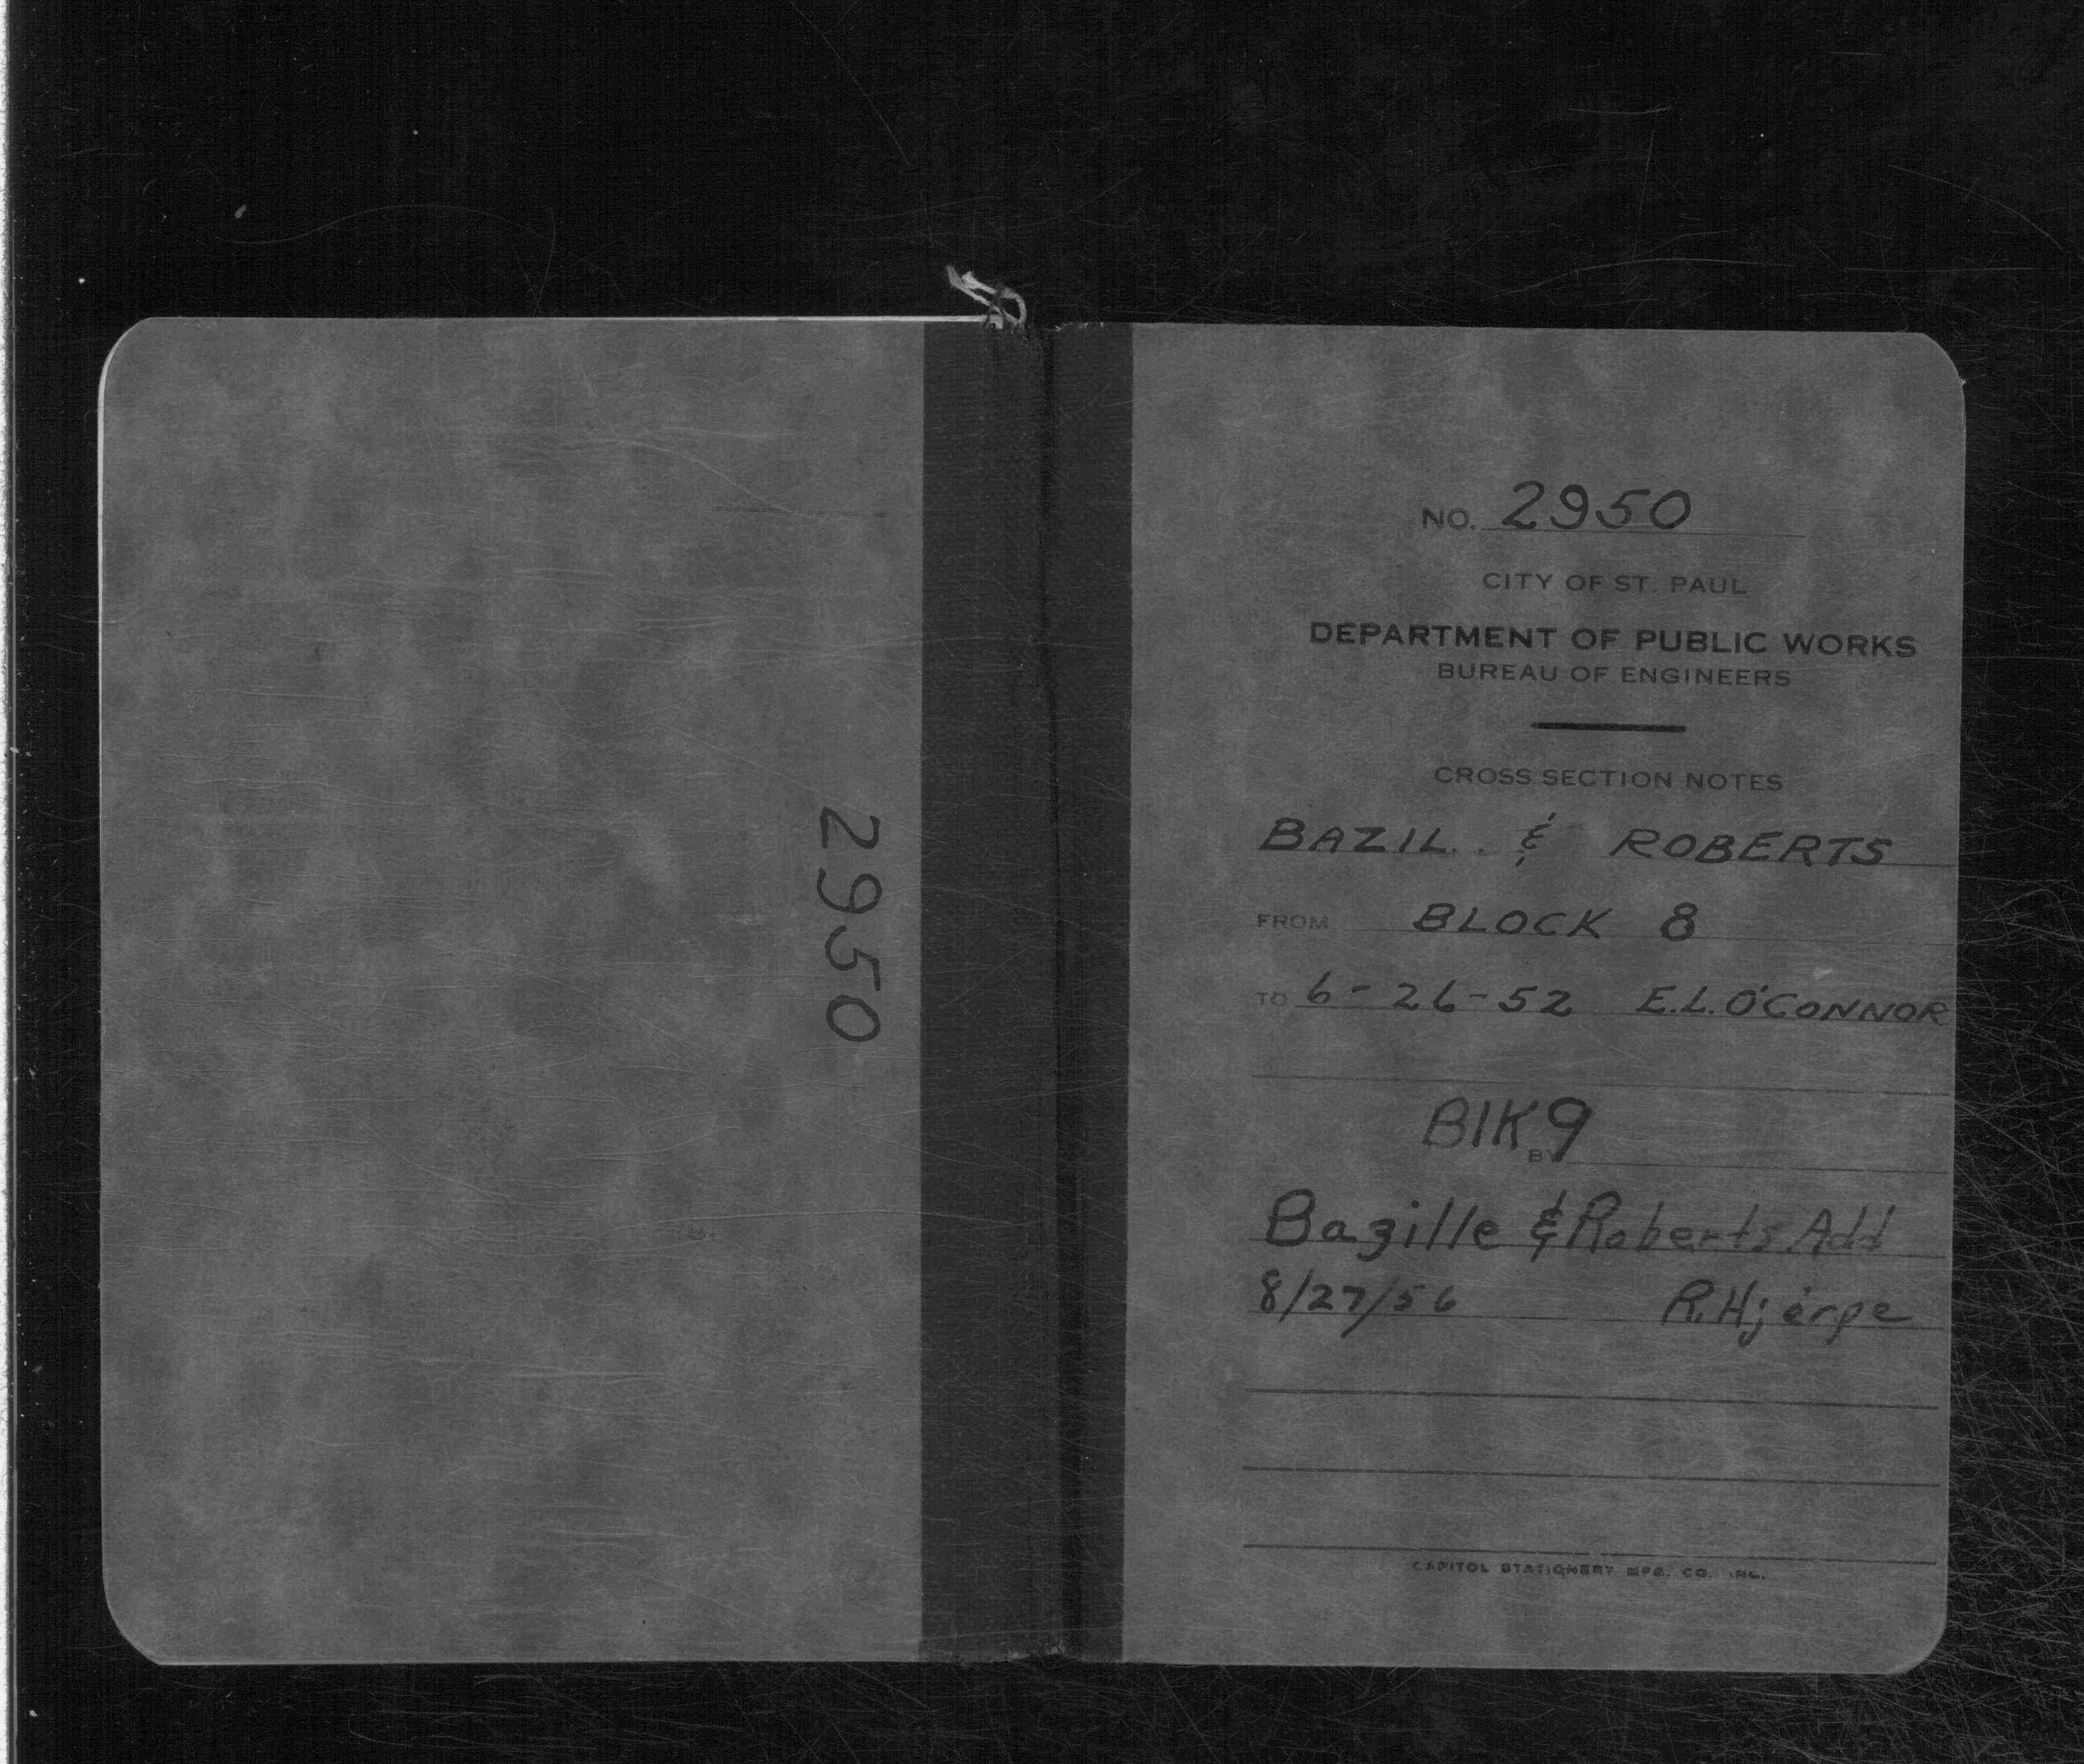 2950
NO. 2950
CITY OF ST. PAUL
DEPARTMENT OF PUBLIC WORKS
BUREAU OF ENGINEERS
CROSS SECTION NOTES
BAZIL.. & ROBERTS
FROM BLOCK 8
TO 6-26-52 E.L. O'CONNOR
BlK 9
BY
Bazille & Roberts Add
8/27/56 R. Hjerpe
CAPITOL STATIONERY MFG. CO. INC.